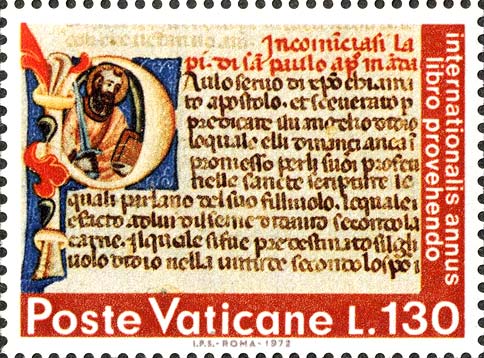 Incomīciasi la
pi. di sā paulo ap̄. m
Aulo seruo di xp̄o chiama
to apostolo. et sceuerato p
predicare didio
loquale elli dinançi anca
promesso perli suoi profeti
nelle sancte scripture le
quali parlano del suo loquale
e facto alui di seme secondo la
carne. Ilquale si fue predestinato
uolo didio nella uirtute secondo lo spi
internationalis annus
libro provehendo
Poste Vaticane L.130
I.P.S.-ROMA-1972